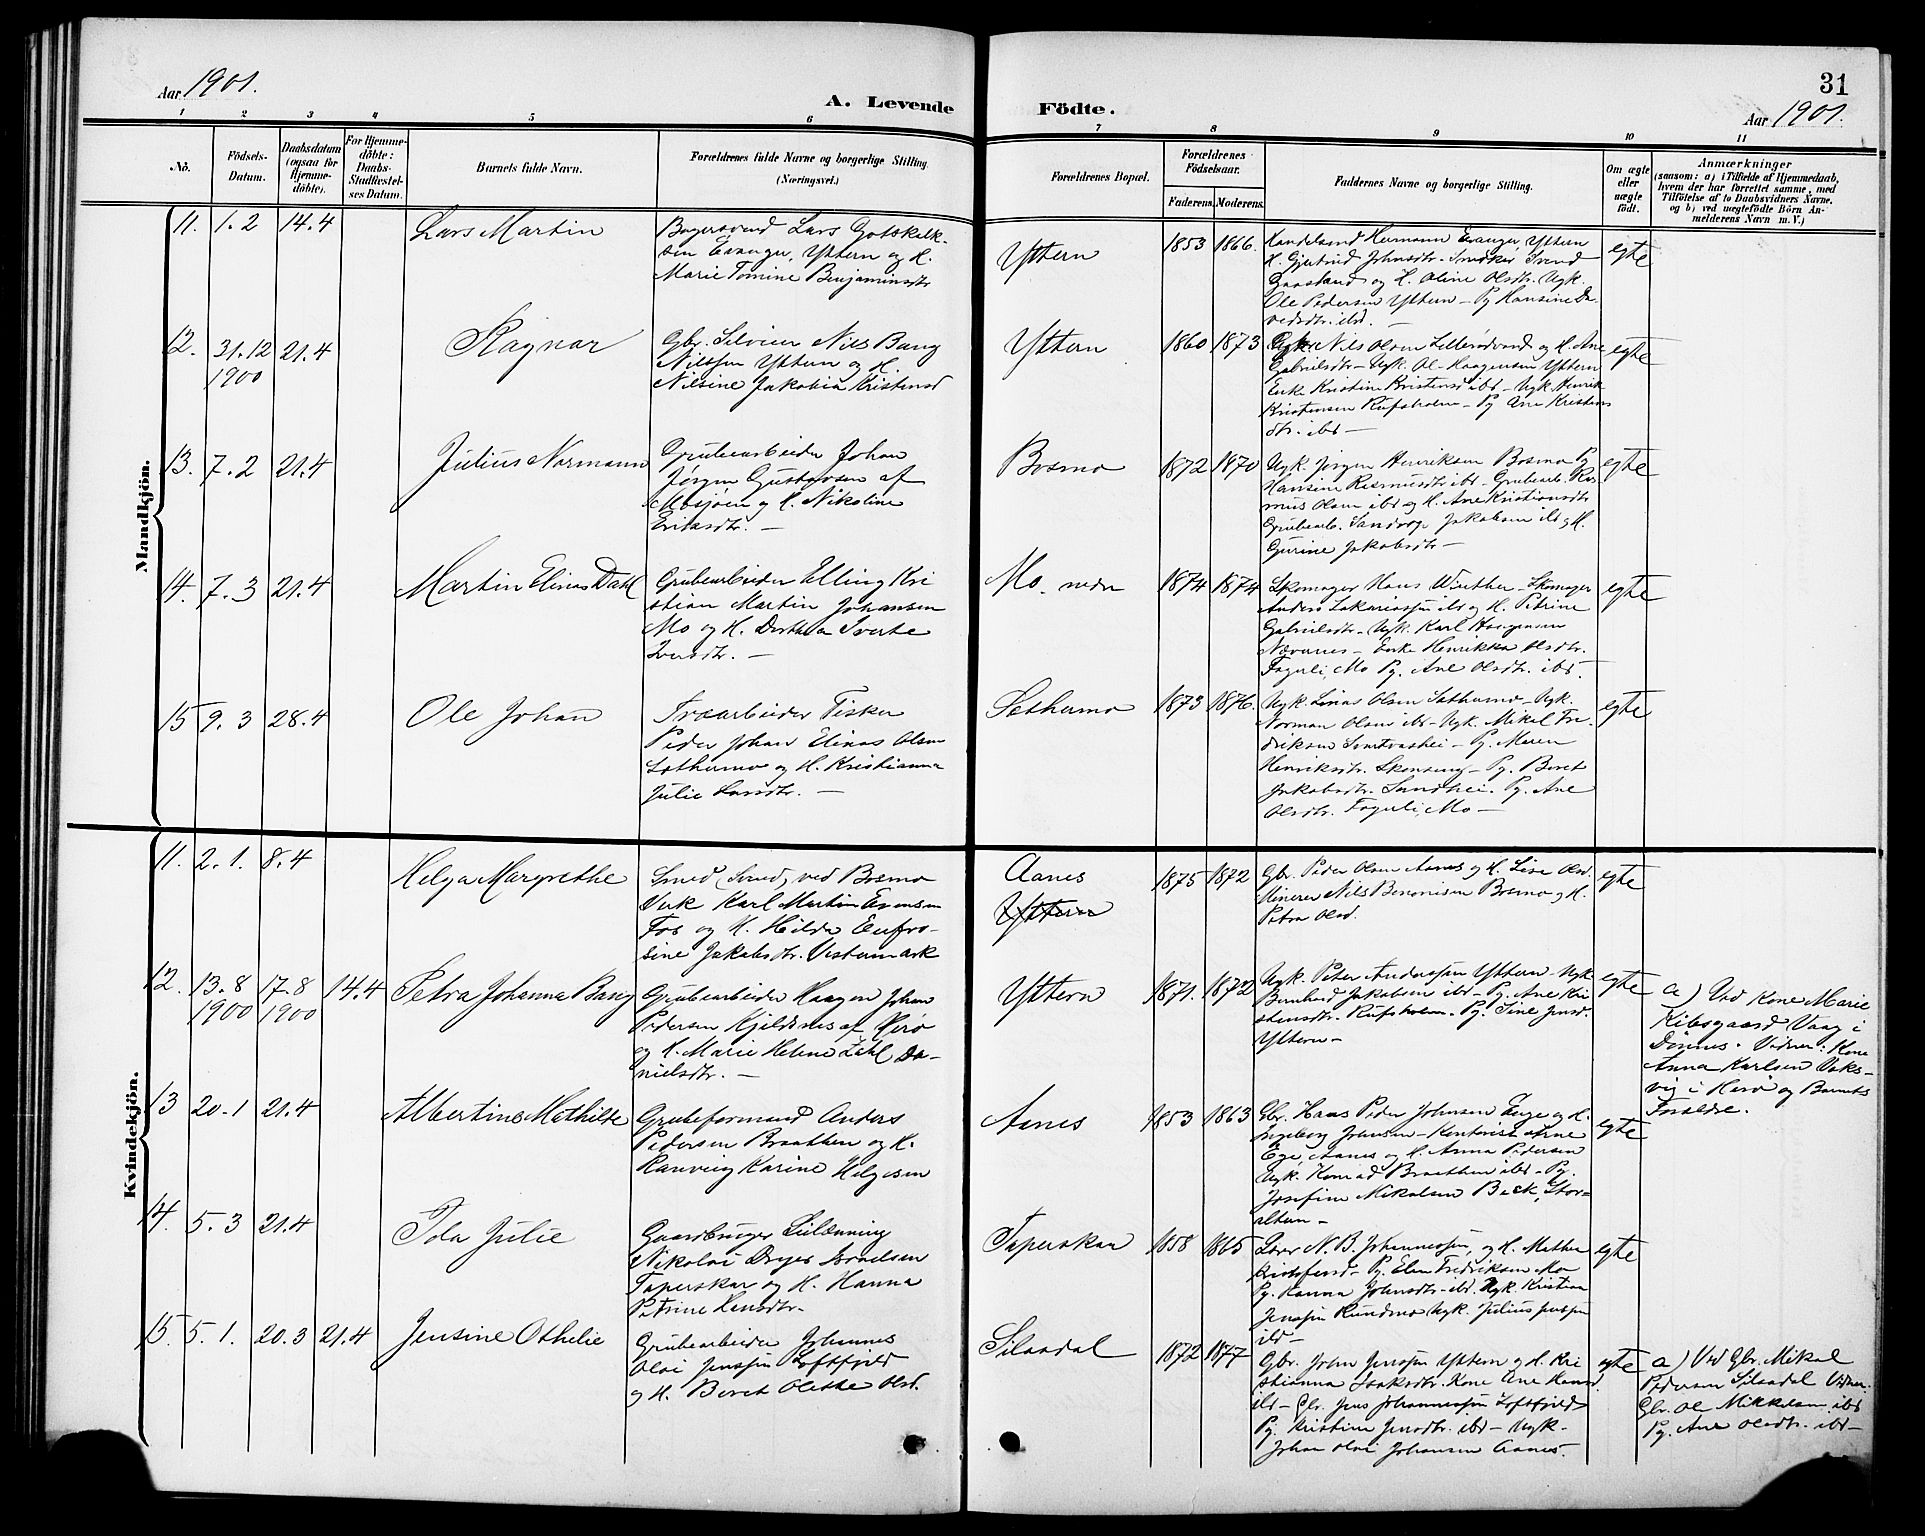 Aar 1901.
A. Levende
Födte.
31
Aar 1901.
1 2 3 4 5 6 7 8 9 10 11
No.
Födsels-
Datum.
Daabsdatum
(ogsaa for
Hjemme-
döbte).
For Hjemme-
döbte:
Daabs-
Stadfæstel-
ses Datum.
Barnets fulde Navn.
Forældrenes fulde Navne og borgerlige Stilling.
(Næringsvei.)
Forældrenes Bopæl.
Forældrenes
Födselsaar.
Faderens.
Moderens.
Faddernes Navne og borgerlige Stilling.
Om ægte
eller
uægte
født.
Anmærkninger
(saasom: a) i Tilfælde af Hjemmedaab,
hvem der har forrettet samme, med
Tilføielse af to Daabsvidners Navne,
og b) ved uægtefødte Børn An-
melderens Navn m. V.)
Mandkjön.
11. 1.2 14.4 Lars Martin
Lars Gotskalk-
sen Evanger, Yttern og H.
Marie Tomine Benjaminsdtr
Yttern 1853 1866.
Handelsmd Hermann Evanger, Yttern
H. Gjertrud Johnsdtr.
og H. Oline Olsdtr. Ugk.
Ole Pedersen Yttern – Pg Hansine Da-
vidsdtr. ibd. –
egte
12. 31.12 21.4 Ragnar
1900
Gbr. Nils Bang
Nilssen Yttern og H.
Nilsine Jakobia Kristensd
Yttern 1860 1873
Nils Olsen og H. Ane
Gabrielsdtr – Ugk. Ol. Haagensen Yttern
Enke Kristine Kristensd ibd – Ugk. Henrik
Kristensen Rufsholm – Pg Ane Kristens
dtr. ibd –
egte
13. 7.2 21.4 Julius Normann
Grubearbeider Johan
Jørgen Gustavsen af
og H. Nikoline
Eriksdtr. –
Bosmo 1872 1870
Ugk. Jørgen Henriksen Bosmo Pg
Hansine Rasmusdtr ibd – Grubearb. Ras
mus Olsen ibd og H. Ane Kristiansdtr
Grubearb. Jakobsen ibd og H.
Gurine Jakobsdtr –
egte
14. 7.3 21.4 Martin Elinas Dahl
Grubearbeider Elling Kri
stian Martin Johansen
Mo og H. Dorthea
Iversdtr. –
Mo. nedre 1874 1874
Skomager Hans Winther – Skomager
Anders Sakariassen ibd og H. Petrine
Gabrielsdtr – Ugk. Karl Haagensen
Næverнes – Enke Henrikka Olsdtr.
Fagerli, Mo Pg. Ane Olsdtr. ibd.
egte
15 9.3 28.4 Ole Johan
Træarbeider Fisker
Peder Johan Elinas Olsen
Sethermo og H. Kristianna
Julie Larsdtr. –
Sethermo 1873 1876.
Ugk. Linas Olsen Sethermo – Ugk.
Norman Olsen ibd – Ugk. Mikal Fre-
driksen Svartvashei – Pg. Maren
Henriksdtr. Skonseng – Pg. Beret
Jakobsdtr. Sandhei. Pg. Ane
Olsdtr. Fagerli, Mo –
egte
Kvindekjön.
11. 2.1. 8.4 Helga Margrethe
Smed (Svend) ved Bosmo
Verk Karl Martin Evensen
Fos og H. Hilda Eufro-
sine Jakobsdtr. Vestermark
Aanes
Yttern
1875 1872
Gbr. Peder Olsen Aanes og H. Lise Olsd
Minerer Nils Benonisen Bosmo og H.
Petra Olsd.
egte
12. 13.8 17.8 14.4 Petra Johanna Bang
1900 1900
Grubearbeider Haagen Johan
Pedersen Kjeldsnes af Herø
og H. Marie Helene Zahl Da-
nielsdtr. –
Yttern 1871. 1872
Ugk. Peter Anderssen Yttern – Ugk
Bernhard Jakobsen ibd – Pg. Ane Kri
stensdtr. Rufsholm. Pg. Sine Jensd.
Yttern –
egte
a) Ved Kone Marie
Kibsgaard Vaag i
Dønnes. Vidner: Kone
Anna Karlsen Vaks-
vig i Herø og Barnets
Forældre.
13 20.1 21.4 Albertine Mathilde
Grubeformand Anders
Pedersen Braathen og H.
Ranveig Karine Helgesen
Aanes 1853 1863
Gbr. Hans Peder Johnsen Enge og H.
Ingeborg Johnsen – Kontorist Arne
Ege, Aanes og H. Anna Pedersen
Ugk. Konrad Braathen ibd – Pg.
Josefine Nikolsen Beck, Stor-
alten –
egte
14. 5.3 21.4 Ida Julie
Gaardbruger Leilænding
Nikolai Dreyer Israelsen
Taperskar og H. Hanna
Petrine Hensdtr.
Taperskar 1858 1865
Lærer N. B. Johannessen, og H. Mathea
Pg. Elen Fredriksen Mo
Pg. Hanna Johnsdtr. ibd. Ugk. Kristian
Jenssen Rundmo Ugk. Julius Jenssen
ibd –
egte
15. 5.1. 20.3 21.4 Jensine Othelie
Grubearbeider Johannes
Olai Jenssen Loftfjeld
og H. Beret Olette Olsd.
Silaadal 1872 1877
Gbr. John Jenssen Yttern og H. Kri
stianna Isaksdtr. Kone Ane Hansd.
ibd – Gbr. Jens Johannessen Loftfjeld
Pg. Kristine Jensdtr. ibd – Ugk.
Johan Olai Johansen Aanes.
egte
a) Ved Gbr. Mikal
Pedersen Silaadal Vidner:
Gbr. Ol Mikkelsen ibd
Pg. Ane Olsdtr. ibd –